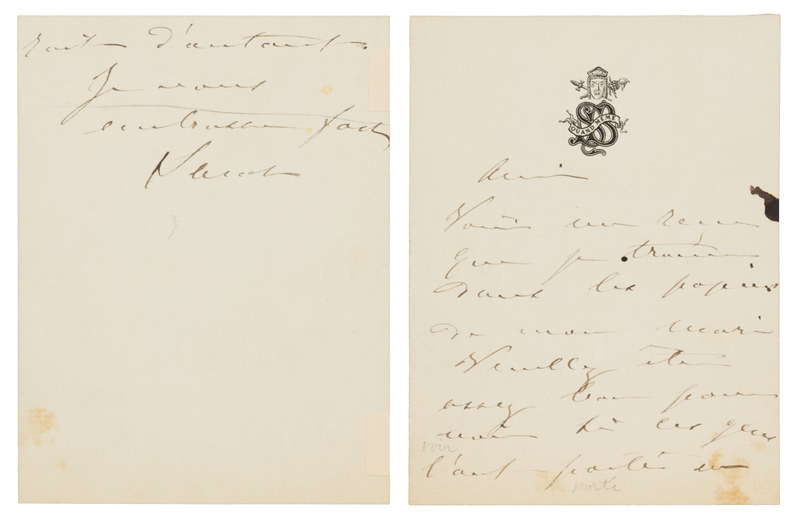 QUAND MEME
Ami
Voici un reçu
que je trouve
dans les papiers
de mon mari
Veuillez être
assez bon pour
voir si ces gens
voir
l'ont porté en
porté
d'autant.
Je vous
embrasse fort
Sarah